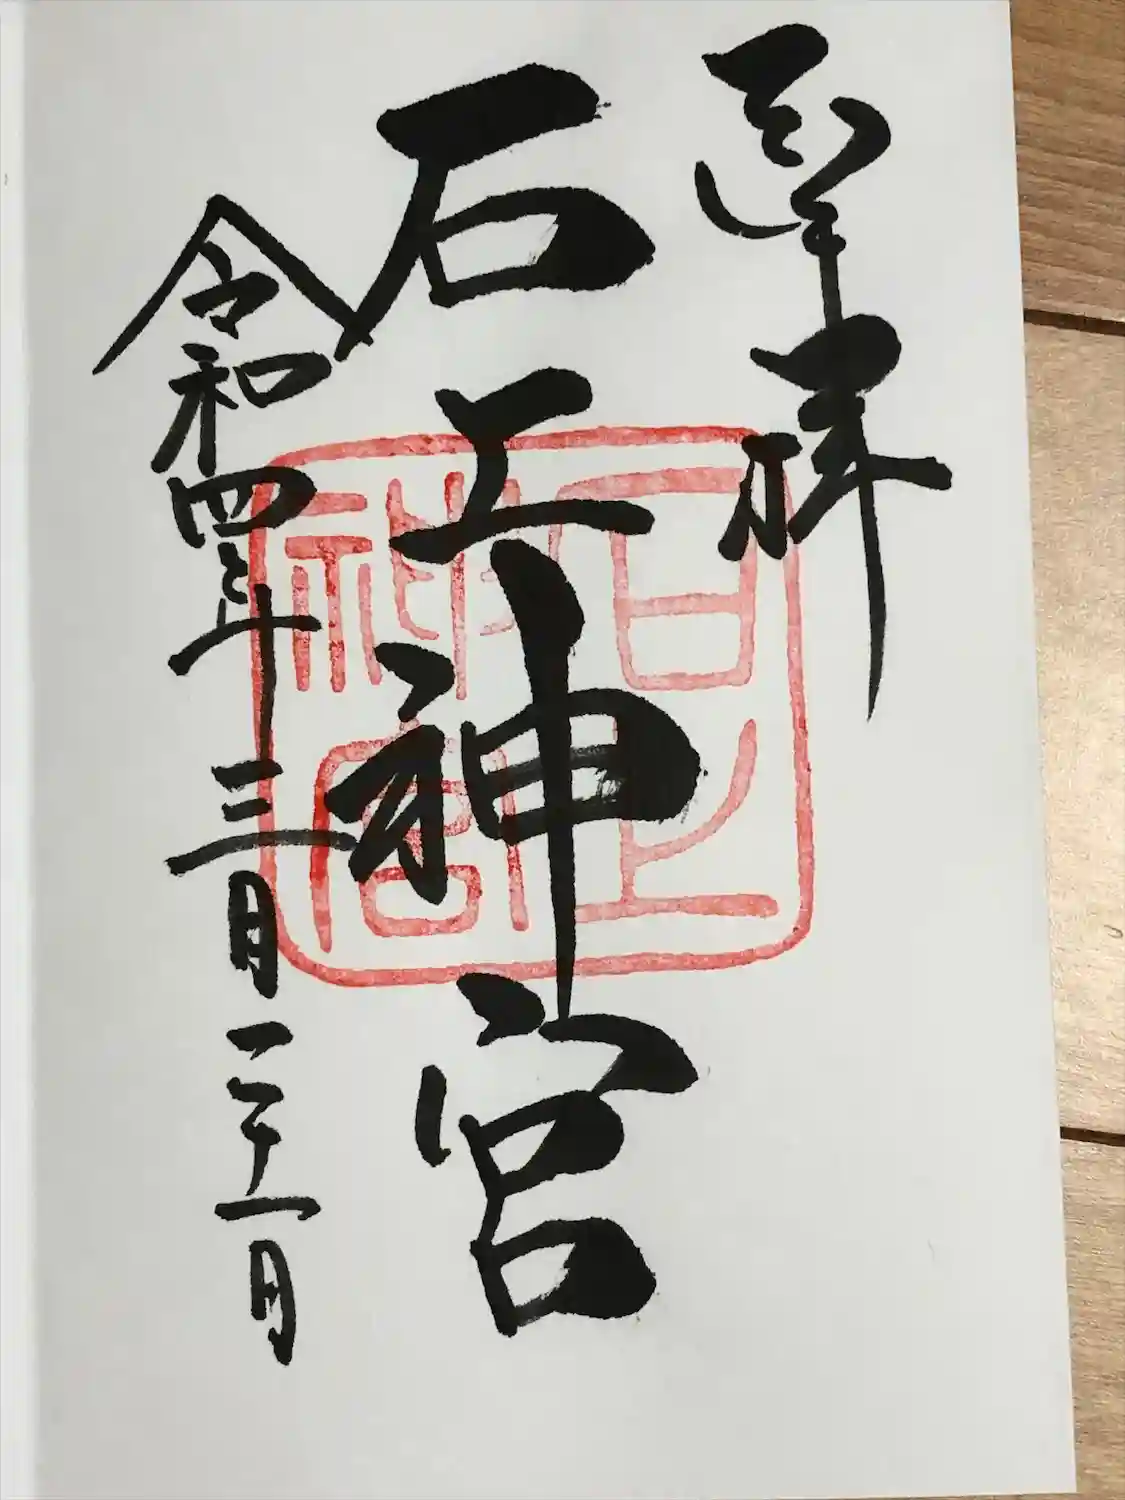 拝
石上神宮
令和四年三月二十一日
石上神宮